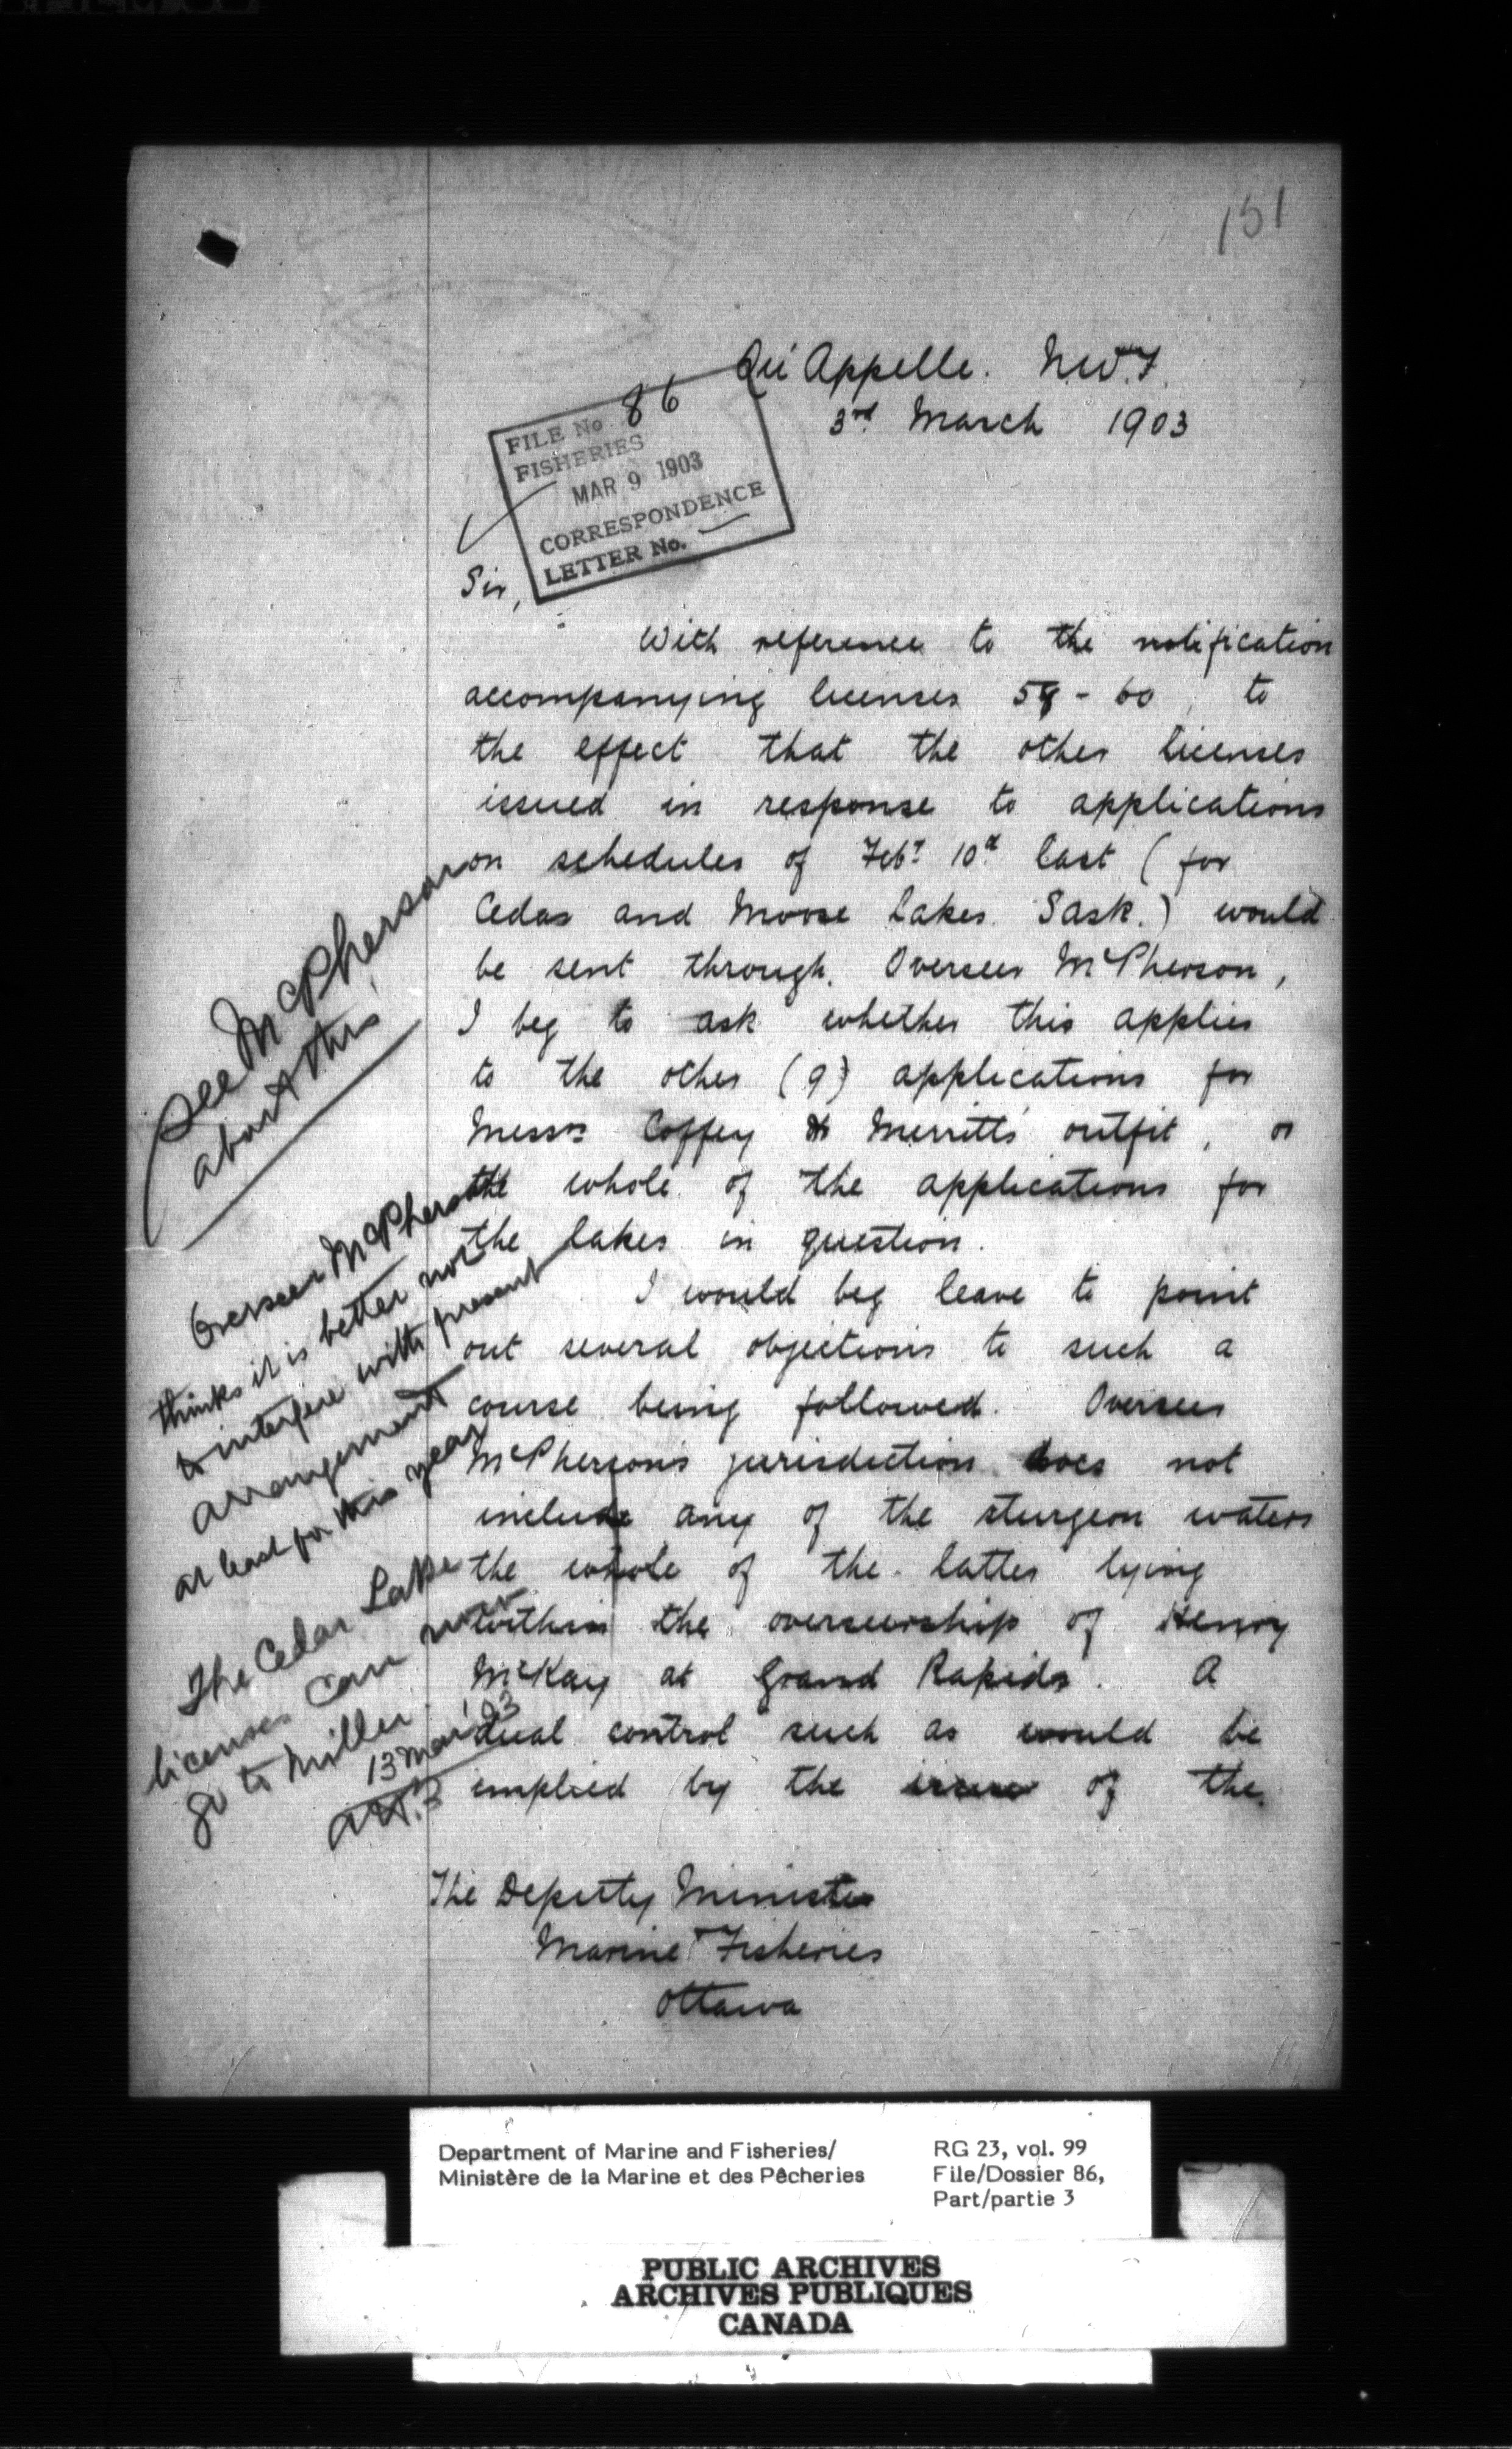 151
Qu'Appelle. N.W.T.
3rd March 1903
FILE No. 86
FISHERIES
MAR 9 1903
CORRESPONDENCE
LETTER No. —
Sir,
With reference to the notification
accompanying licenses 59-60, to
the effect that the other licenses
issued in response to applications
on schedules of Feby 10th last (for
Cedar and Moose Lakes. Sask.) would
be sent through Overseer McPherson,
I beg to ask whether this applies
to the other (9) applications for
Messrs Coffey & Merritt's outfit, or
the whole of the applications for
the lakes in question.
I would beg leave to point
out several objections to such a
course being followed. Overseer
McPherson's jurisdiction does not
include any of the sturgeon waters
the whole of the latter lying
within the overseership of Henry
McKay at Grand Rapids. A
dual control such as would be
implied by the issue of the
The Deputy Minister
Marine & Fisheries
Ottawa
See McPherson
about this
Overseer McPherson
thinks it is better not
to interfere with present
arrangement
at least for this year
The Cedar Lake
licenses can now
go to Miller
13 Mar '03
Department of Marine and Fisheries/
Ministère de la Marine et des Pêcheries
RG 23, vol. 99
File/Dossier 86,
Part/partie 3
PUBLIC ARCHIVES
ARCHIVES PUBLIQUES
CANADA